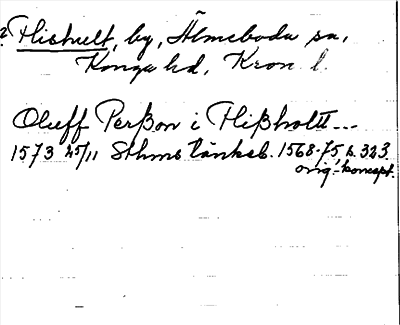 Flishult, by, Älmeboda sn,
Konga hd, Kron. l.
Oluff Perßon i Flißholtt---
1573 25/11 Sthms tänkeb. 1568-75, s. 323.
orig.-koncept.